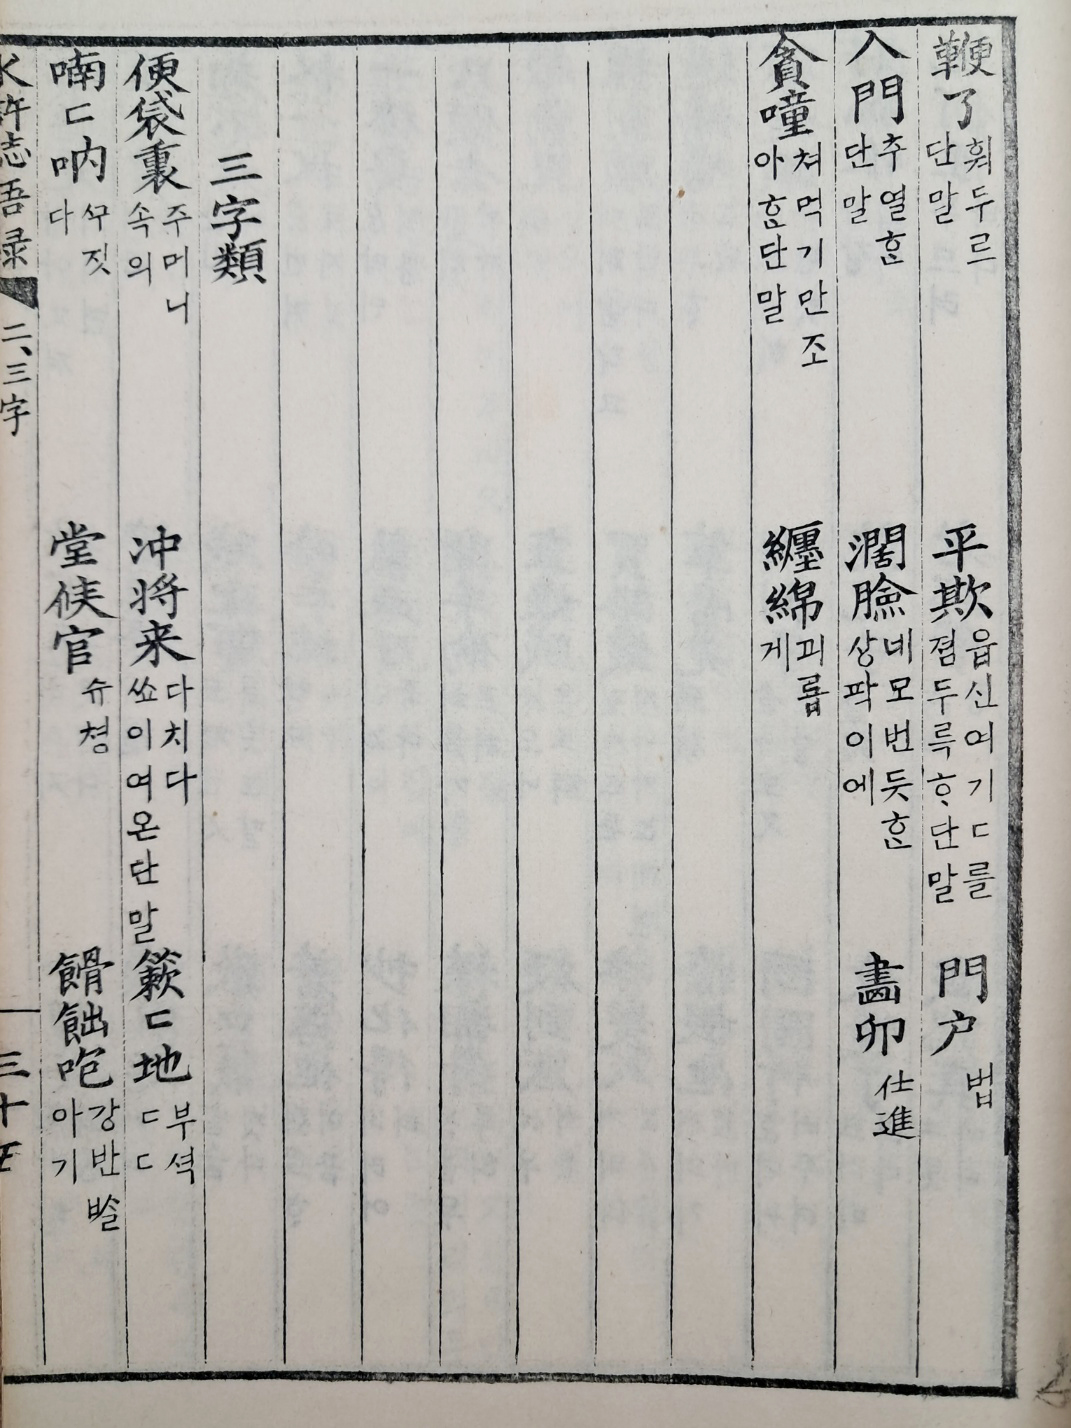 鞭了 휘두르단말
平欺 읍신여기ㄷ를졈두륵ᄒᆞ단말
門户 법
入門 추열ᄒᆞᆫ단말
濶臉 네모번듯ᄒᆞᆫ상팍이에
畵卯 仕進
貪噇 쳐먹기만조아ᄒᆞ단말
纏綿 괴롭게
三字類
便袋裏 주머니속의
冲将来 다치다ᄡᅩ이여온단말
簌ㄷ地 부셕ㄷㄷ
喃ㄷ吶 ᄭᅮ짓다
堂候官 슈쳥
餶飿 강반ᄡᅡᆯ아기
水許志吾录 二、三字 三十五